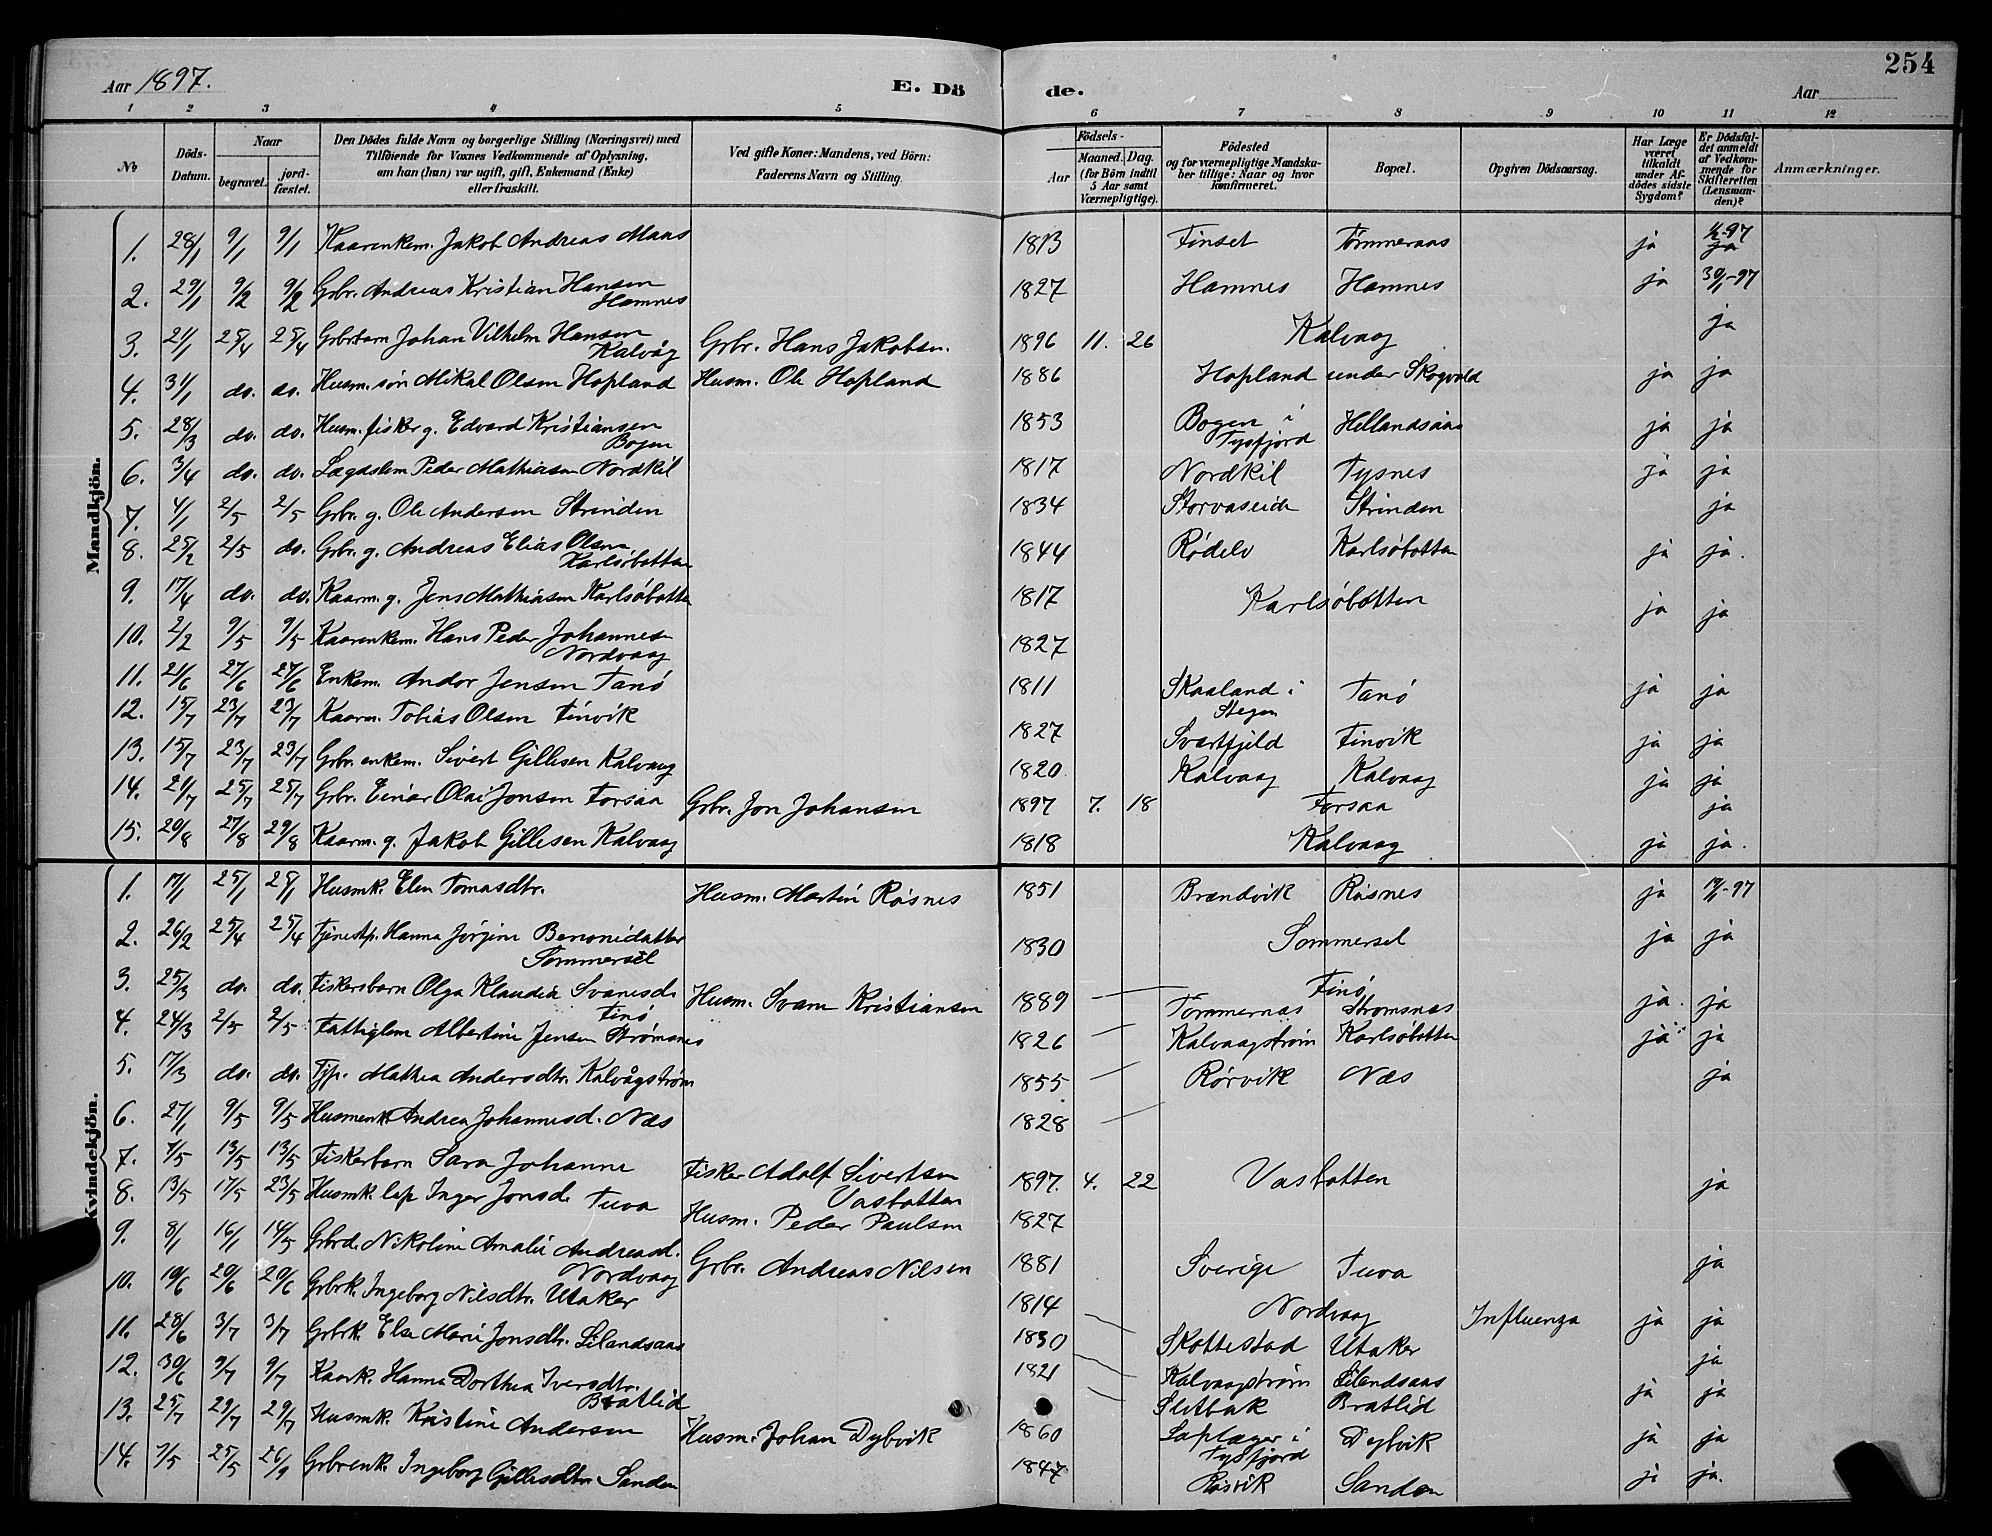 254
Aar 1897.
E. Dö
de.
Aar
1 2 3 4 5 6 7 8 9 10 11 12
No
Döds-Datum.
Naar
begravet.
jord-fæstet.
Den Dödes fulde Navn og borgerlige Stilling (Næringsvei) med
Tilföiende for Voxnes Vedkommende af Oplysning,
om han (hun) var ugift, gift, Enkemand (Enke)
eller fraskilt.
Ved gifte Koner: Mandens, ved Börn:
Faderens Navn og Stilling.
Födsels-
Aar
Maaned. Dag.
(for Börn indtil
5 Aar samt
Værnepligtige).
Födested
og for værnepligtige Mandska-
ber tillige: Naar og hvor
Konfirmeret.
Bopæl.
Opgiven Dödsaarsag.
Har Læge
været
tilkaldt
under Af-
dödes sidste
Sygdom?
Er Dödsfal-
det anmeldt
af Vedkom-
mende for
Skifteretten
(Lensman-
den)?
Anmærkninger.
Mandkjön.
1. 28/1 9/1 9/1 Kaarenkem. Jakob Andreas Maas 1813 Finset Tømmeraas ja 1/2-97 ja
2. 29/1 9/2 9/2 Gbr. Andreas Kristian Hansen Hamnes 1827 Hamnes Hamnes ja 30/1-97
3. 21/1 25/4 25/4 Grbrbarn Johan Vilhelm Hansen Kalvåg Grbr. Hans Jakobsen. 1896 11. 26 Kalvaag ja
4. 31/1 do. do. Husm. søn Mikal Olsen Hopland Husm. Ole Hopland 1886 Hopland under Skogvold ja ja
5. 28/3 do. do. Husm. fisker g. Edvard Kristiansen Bogen 1853 Bogen i Tysfjord Hellandsaas ja ja
6. 3/4 do. do. Lægdslem Peder Mathiasen Nordkil 1817 Nordkil Tysnes ja ja
7. 4/1 2/5 2/5 Grbr. g. Ole Andersen Strinden 1834 Storvaseide Strinden ja
8. 25/2 2/5 do. Grbr. g. Andreas Elias Olsen Karlsöbotten 1844 Rødelv Karlsöbotten ja ja.
9. 17/4 do. do. Kaarm. g. Jens Mathiasen Karlsöbotten 1817 Karlsöbotten ja ja
10. 2/2 9/5 9/5 Kaarenkem. Hans Peder Johannesen Nordvaag 1827
11. 21/6 27/6 27/6 Enkem. Andor Jensen Tanö 1811 Skaaland i Stegen Tanö ja ja
12. 15/7 23/7 23/7 Kaarm. Tobias Olsen Finvik 1827 Svartfjeld Finvik ja ja
13. 15/7 23/7 23/7 Grbr. enkem. Sivert Gillesen Kalvaag 1820 Kalvaag Kalvaag ja ja
14. 21/7 25/7 25/7 Grbr. Einar Olai Jonsen Forsaa Grbr. Jon Johansen 1897 7. 18 Forsaa ja
15. 20/8 27/8 29/8 Kaarm. g. Jakob Gillesen Kalvaag 1818 Kalvaag ja ja.
Kvindekjön.
1. 17/1 25/1 25/1 Husmk. Elen Tomasdtr. Husm. Martin Røsnes 1851 Brændvik Røsnes ja 19/1-97
2. 26/2 25/4 25/4 Tjenestp. Hanna Jörgine Benonidatter Sommersel 1830 Sommersel ja ja
3. 25/3 do. do. Fiskersbarn Olga Klaudia Svanesd. Finö Husm. Svane Kristiansen 1889 Finö ja. ja
4. 24/3 2/5 2/5 Fattiglem Albertine Jensen Strømsnes 1826 Tömmernas Strømsnas ja ja
5. 17/3 do. do. Tjp. Mathea Andersdtr. Kalvågstrøm 1855 Kalvaagstrøm Karlsöbotten ja
6. 27/1 9/5 9/5 Husmenk. Andrea Johannesd. Næs 1828 Rörvik Næs
7. 7/5 13/5 13/5 Fiskerbarn Sara Johanne Fisker Adolf Sivertsen Vasbotten 1897. 4. 22 Vasbotten ja
8. 13/5 17/5 23/5 Husmk. lap. Inger Jonsd. Tuva Husm. Peder Paulsen 1827 Sverige Tuva ja
9. 8/1 16/1 14/5 Grbrd. Nikoline Amalie Andreasd. Nordvaag Grbr. Andreas Nilsen 1881 Nordvaag Influenza ja ja
10. 19/6 29/6 29/6 Grbrk. Ingeborg Nilsdtr. Utaker 1814 Skottestad Utaker ja
11. 28/6 3/7 3/7 Grbrk. Else Marie Jonsdtr. Lilandsaas 1830 Kalvaagstrøm Lilandsaas ja ja
12. 30/6 9/7 9/7 Kaark. Hanna Dorthea Iversdtr. Bratlid 1821 Slitbak Bratlid
13. 25/7 29/7 29/7 Husmk. Kristine Andersen Husm. Johan Dybvik 1860 Laplæger i Tysfjord Dybvik ja ja
14. 7/5 25/5 26/9 Grbrenk. Ingeborg Gillesdtr. Sanden 1847 Røsvik Sanden ja ja.